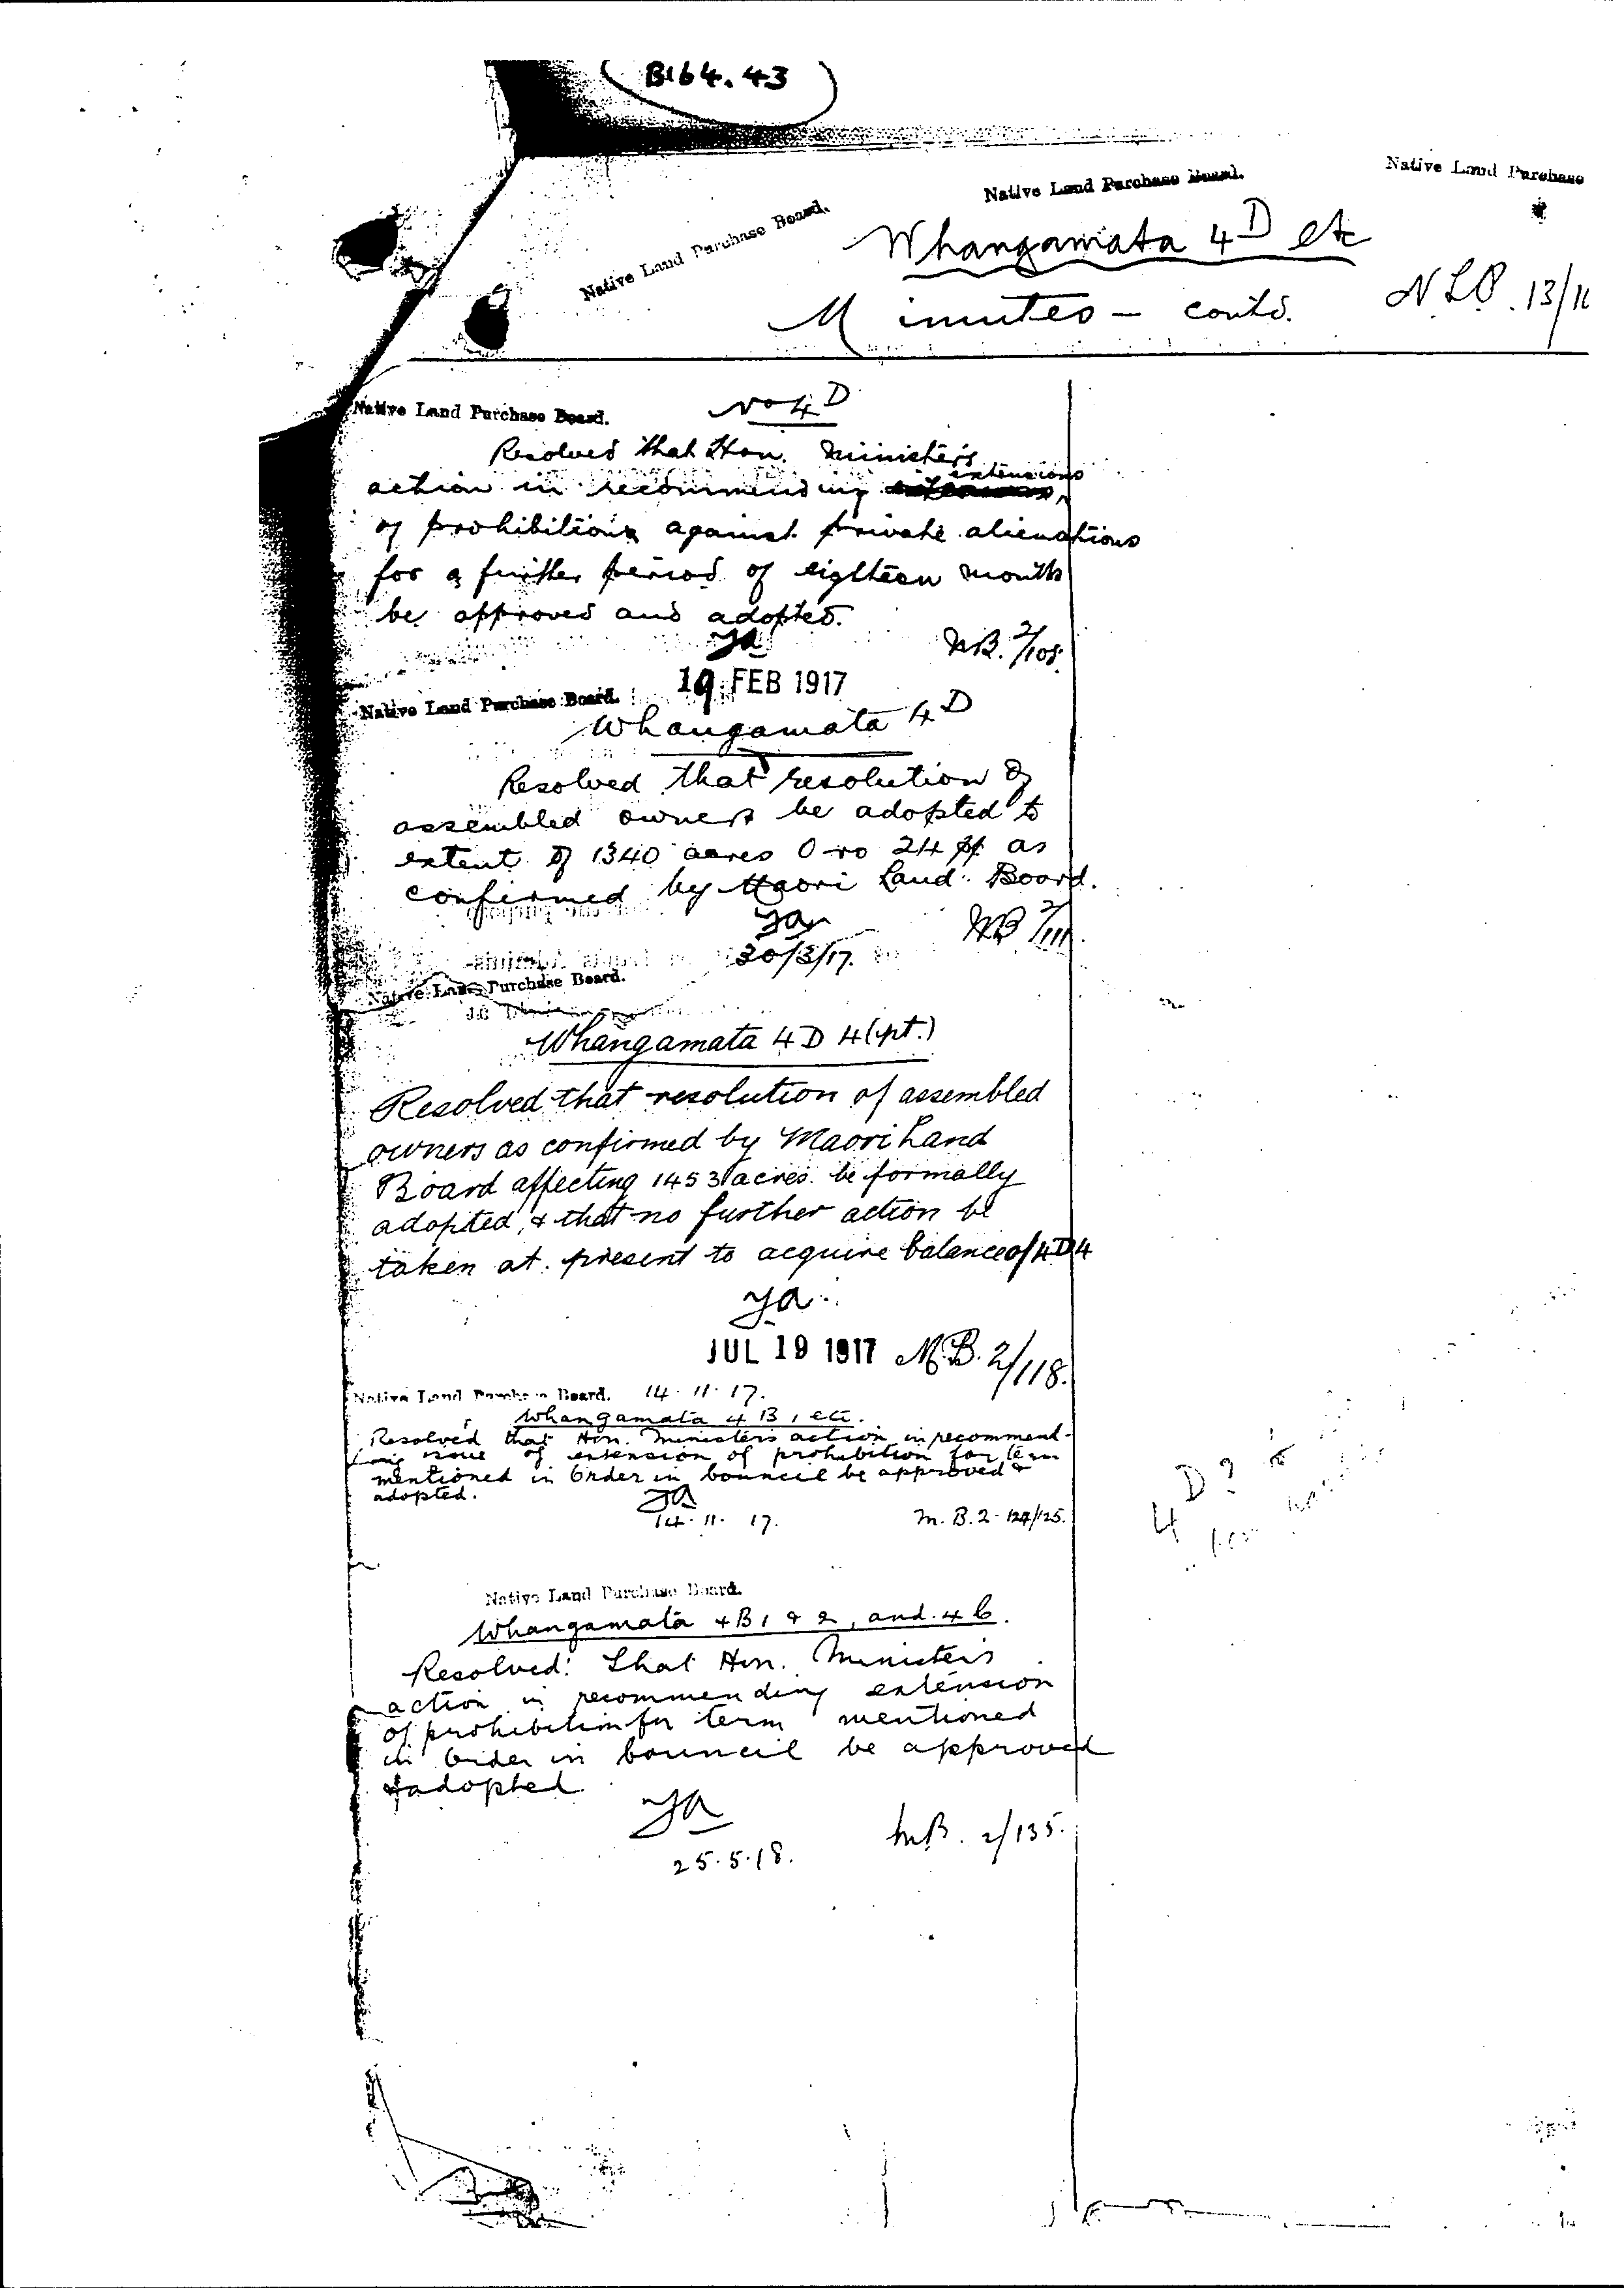 B164.43
Native Land Purchase Board.
Native Land Purchase Board.
Native Land Purchase
Whangamata 4D etc
Minutes – contd.
N.L.P. 13/11
Native Land Purchase Board.
No 4D
Resolved that Hon. Minister's
extensions
action in recommending
of prohibitions against private alienations
for a further period of eighteen months
be approved and adopted.
MB. 2/108.
19 FEB 1917
Native Land Purchase Board.
Whangamata 4D
Resolved that resolution of
assembled owners be adopted to
extent of 1340 acres 0 ro 24 pp as
confirmed by Maori Land Board.
MB 2/111.
30/3/17.
Native Land Purchase Board.
Whangamata 4D 4 (pt.)
Resolved that resolution of assembled
owners as confirmed by Maori Land
Board affecting 1453 acres be formally
adopted, & that no further action be
taken at present to acquire balance of 4D4
JUL 19 1917 M.B. 2/118.
Native Land Purchase Board. 14.11.17.
Whangamata 4 B 1 etc.
Resolved that Hon. Minister's action in recommend-
ing issue of extension of prohibition for term
mentioned in Order in Council be approved &
adopted.
14.11.17.
M.B.2-124/125.
Native Land Purchase Board.
Whangamata 4B1 & 2, and 4C.
Resolved: That Hon. Minister's
action in recommending extension
of prohibition for term mentioned
in Order in Council be approved
& adopted.
25.5.18.
M.B. 2/135.
4D?